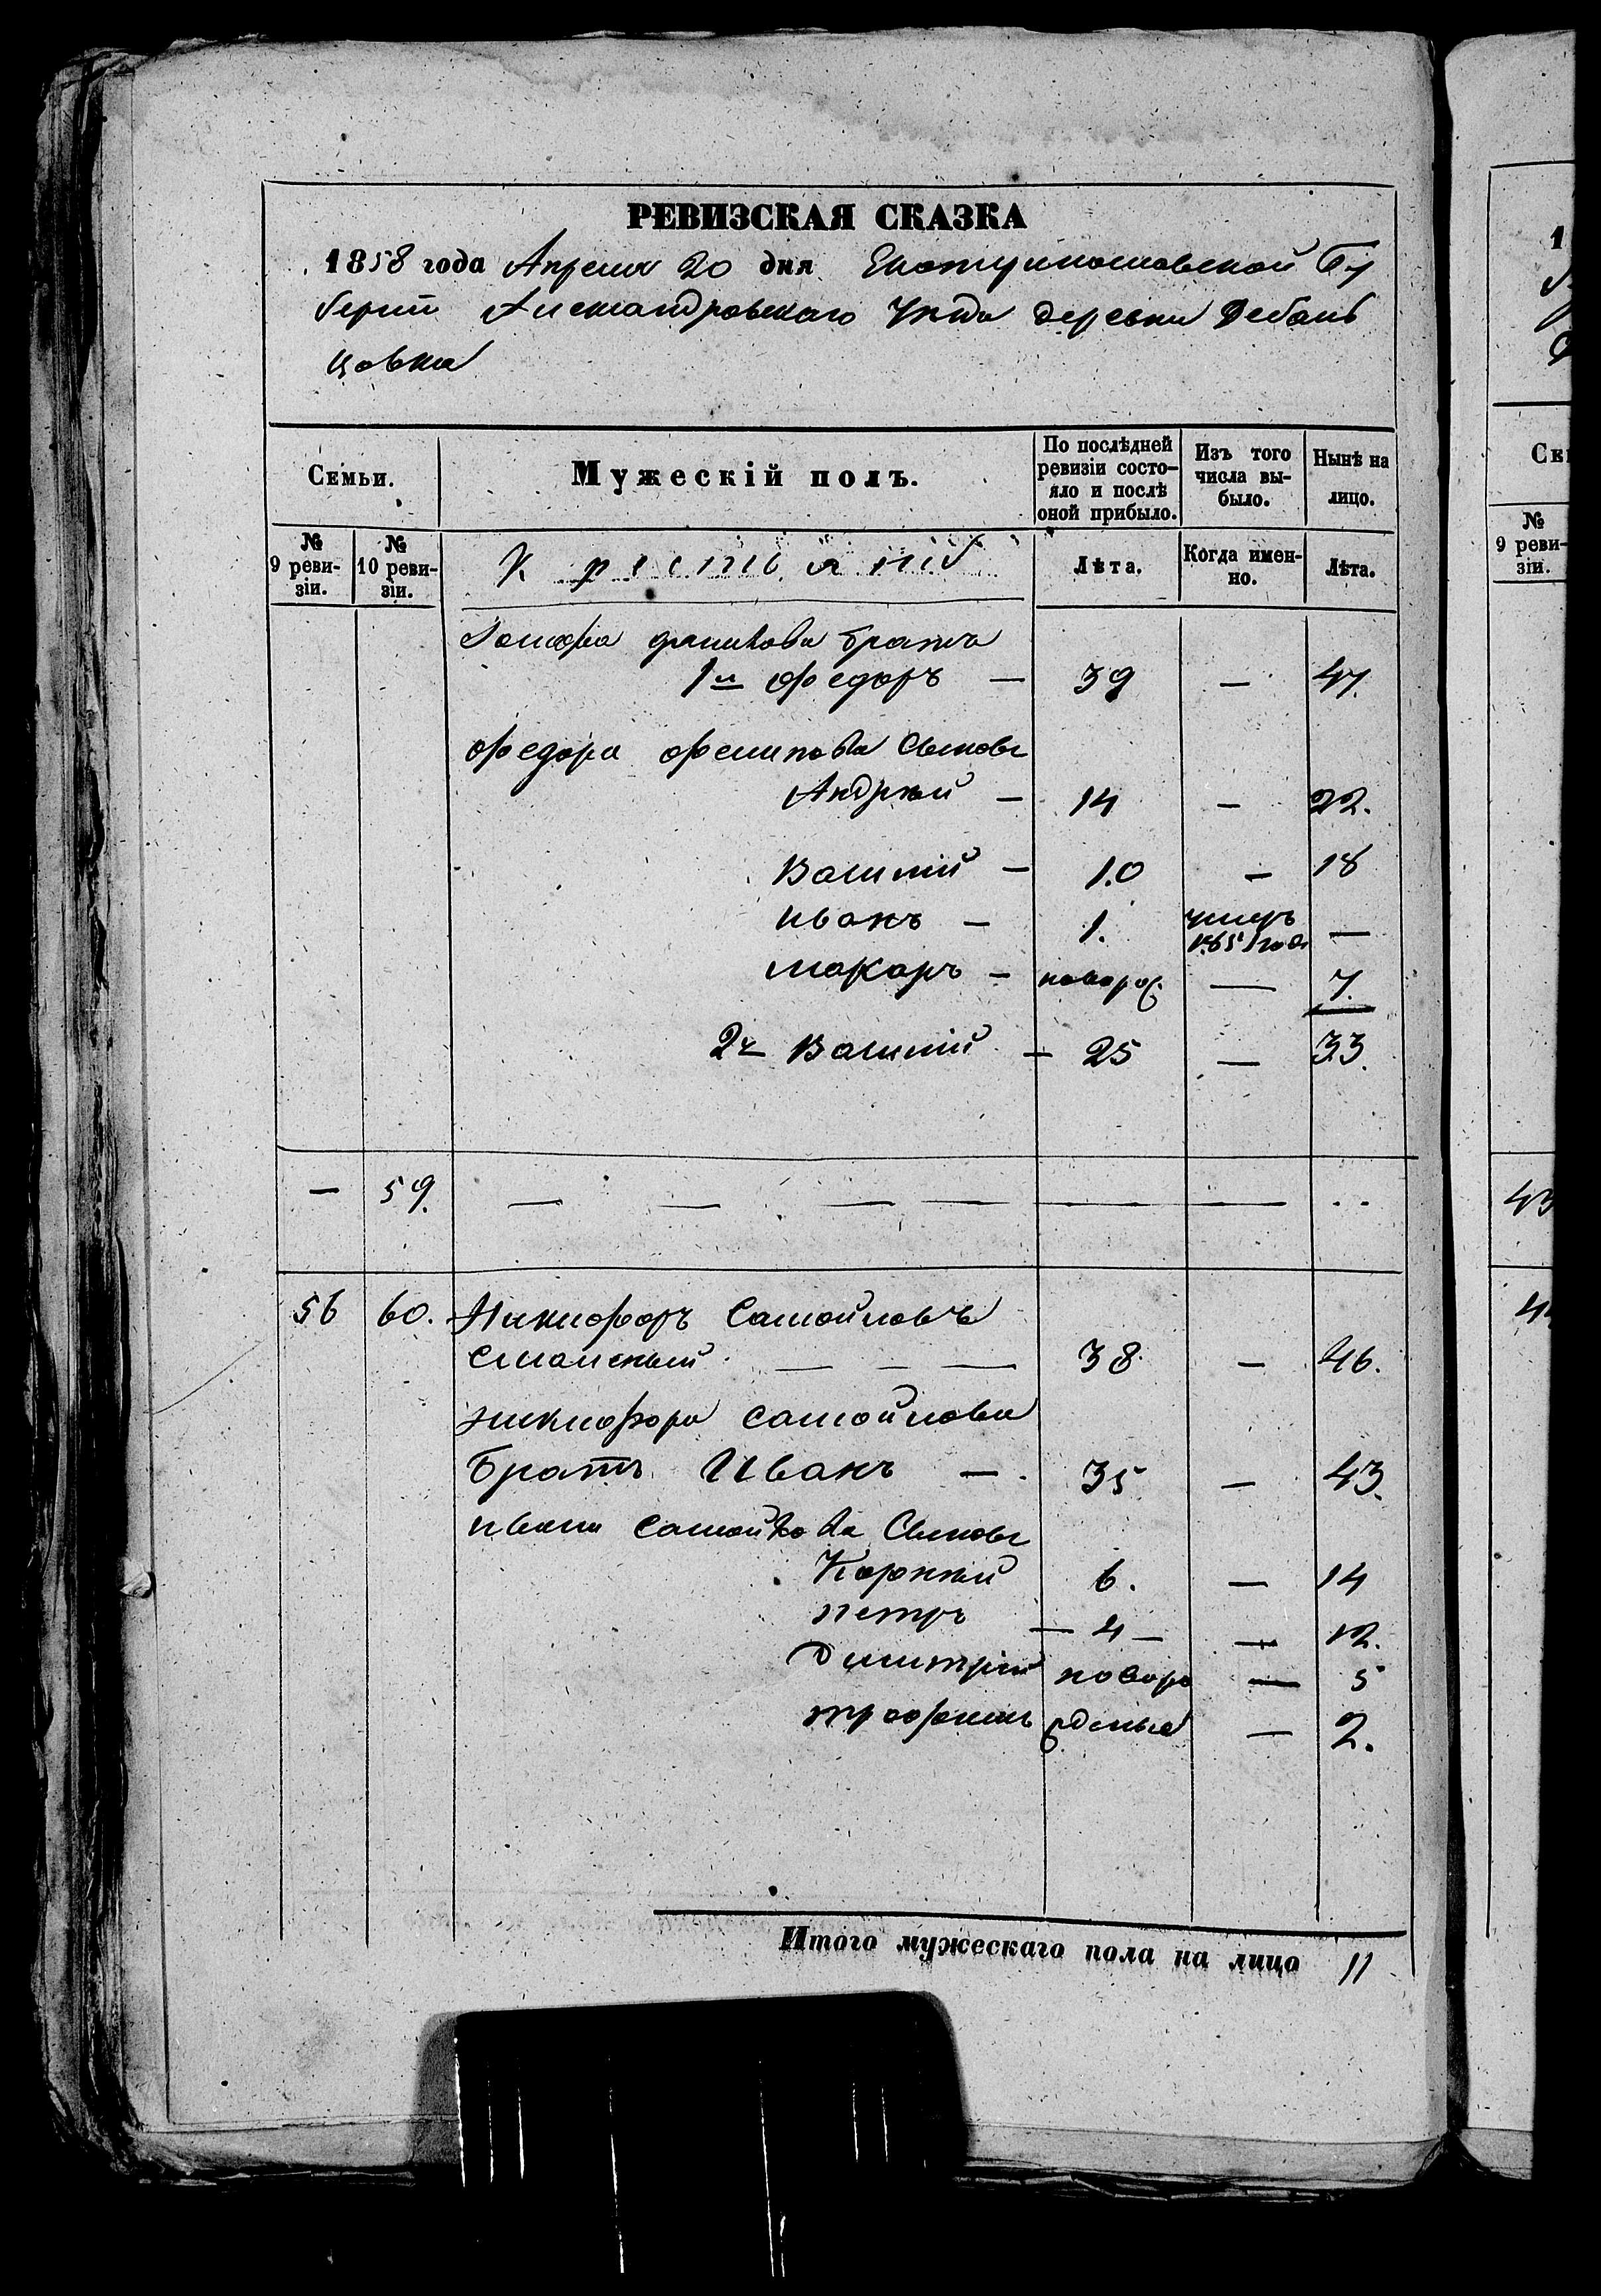 РЕВИЗСКАЯ СКАЗКА
1858 года Апреля 20 дня Екатеринославской Гу
берніи Александровскаго Уѣзда деревни Дебаль
цовки
Семьи.
Мужескій полъ.
По послѣдней ревизіи состо-
яло и послѣ оной прибыло.
Изъ того числа вы-
было.
Нынѣ на лицо.
№ 9 реви-
зіи.
№ 10 реви-
зіи.
Крестьянѣ
Лѣта.
Когда имен-
но.
Лѣта.
братья
1й Федоръ — 39 — 47.
Федора Филипова Сыновья
Андрей — 14 — 22.
Василій — 10 — 18
Иванъ — 1. умеръ 1851 года —
Макаръ — оворож — 7.
2й Василій — 25 — 33.
— 59. — — — — — —
56 60. Никифоръ Самойловъ
38 — 46.
Никифора Самойлова
братъ Иванъ — 35 — 43.
Ивана Самойлова Сыновья
Корней 6. — 14
Петръ — 4 — — 12.
Димитрій новоро — 5
Трофимъ жденые — 2.
Итого мужескаго пола на лицо 11
1
Се
№ 9 реви-
зіи.
43